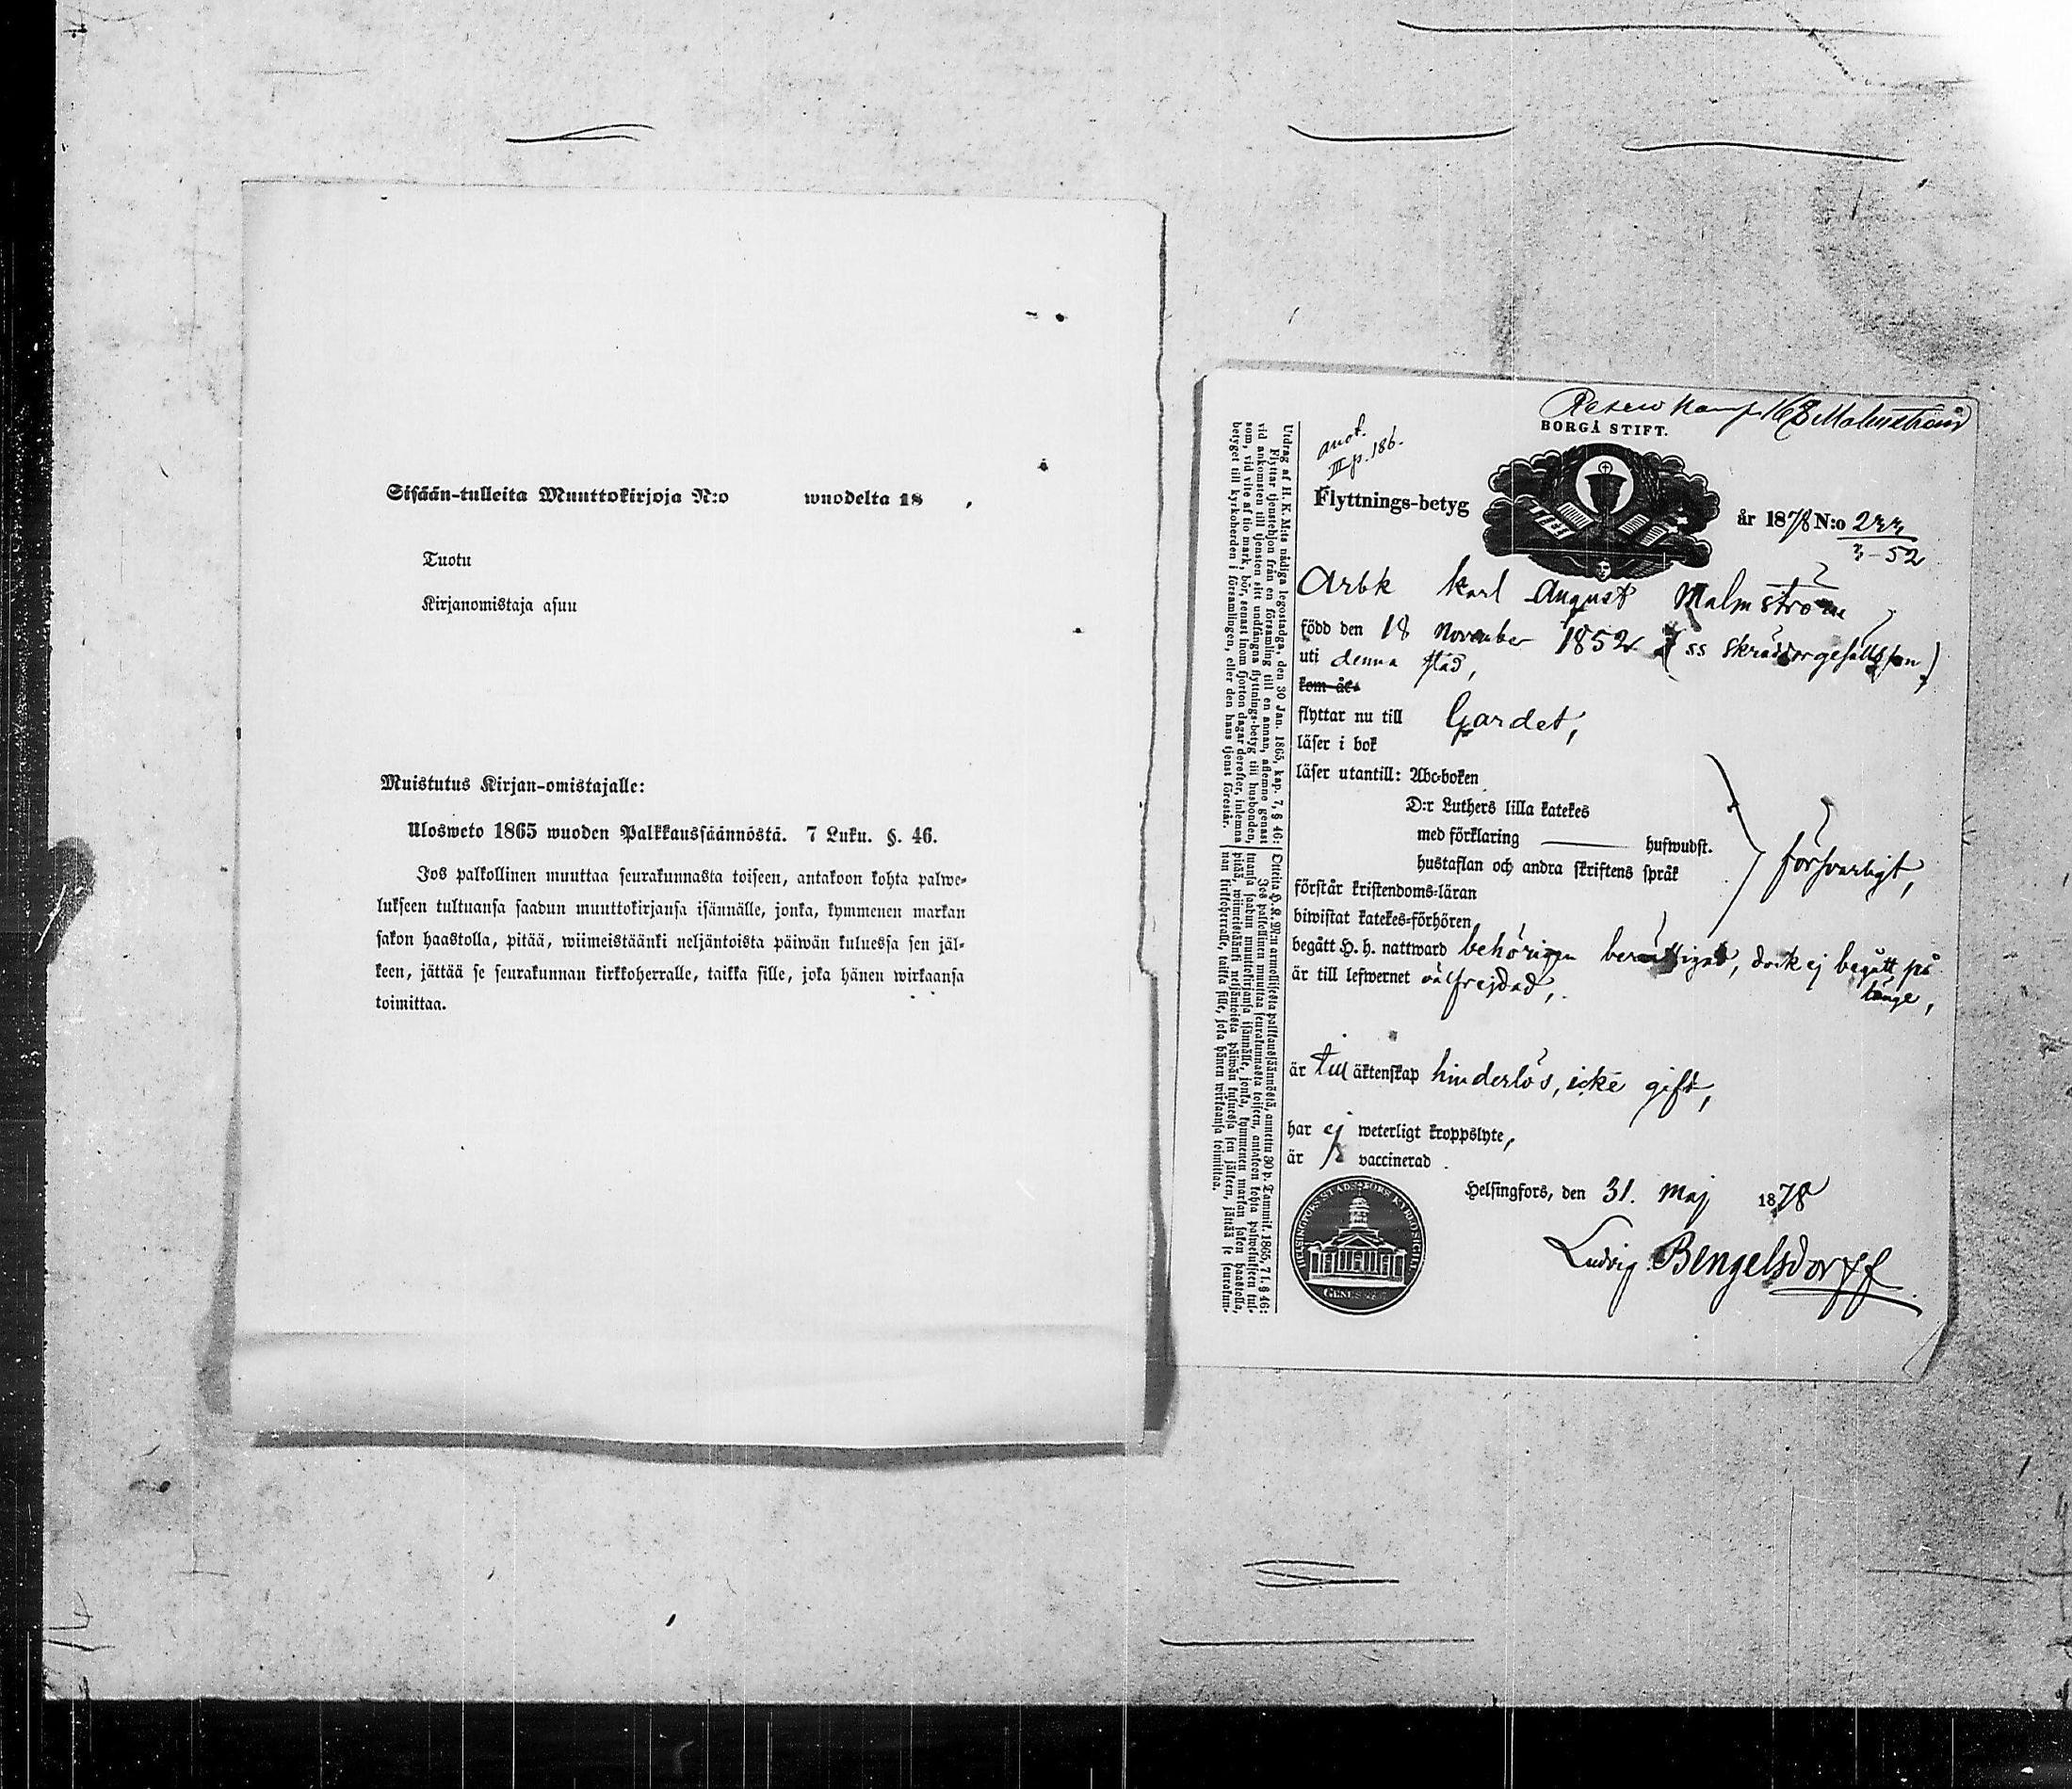 Sisään-tulleita Muuttokirjoja N:o wuodelta 18 ,
Tuotu
Kirjanomistaja asuu
Muistutus Kirjan-omistajalle:
Ulosweto 1865 wuoden Palkkaussäännöstä. 7 Luku. §. 46.
Jos palkollinen muuttaa seurakunnasta toiseen, antakoon kohta palwe-
lukseen tultuansa saadun muuttokirjansa isännälle, jonka, kymmenen markan
sakon haastolla, pitää, wiimeistäänki neljäntoista päiwän kuluessa sen jäl-
keen, jättää se seurakunnan kirkkoherralle, taikka sille, joka hänen wirkaansa
toimittaa.
Malmström
BORGÅ STIFT.
anot.
III p. 186.
Flyttnings-betyg
år 1878 N:o 233
3-52
Arbk Karl August Malmström
född den 18 November 1852 (ss skräddargesällsson)
uti denna stad,
kom år
flyttar nu till Gardet,
läser i bok
läser utantill: Abc-boken
D:r Luthers lilla katekes
med förklaring hufwudst.
hustaflan och andra skriftens språk
försvarligt,
förstår kristendoms-läran
biwistat katekes-förhören
begått H. h. nattward behörigen berättigad, dock ej begått på
länge,
är till lefwernet välfrejdad,
är till äktenskap hinderlös, icke gift,
har ej weterligt kroppslyte,
är vaccinerad
Helsingfors, den 31. Maj 1878
Ludvig Bengelsdorff
Utdrag af H. K. M:ts nådiga legostadga, den 30 Jan. 1865, kap. 7, § 46:
Flyttar tjenstehjon från en församling till en annan, aflemne genast
vid ankomsten till tjensten sitt undfångna flyttnings-betyg till husbonden,
som, vid vite af tio mark, bör, senast inom fjorton dagar derefter, inlemna
betyget till kyrkoherden i församlingen, eller den hans tjenst förestår.
Otteita H. K. M:n armollisesta palkkaussäännöstä, annettu 30 p. Tammik. 1865, 7 l. § 46:
Jos palkollinen muuttaa seurakunnasta toiseen, antakoon kohta palwelukseen tul-
tuansa saadun muuttokirjansa isännälle, jonka, kymmenen markan sakon haastolla,
pitää, wiimeistäänki neljäntoista päiwän kuluessa sen jälkeen, jättää se seurakun-
nan kirkkoherralle, taikka sille, joka hänen wirkaansa toimittaa.